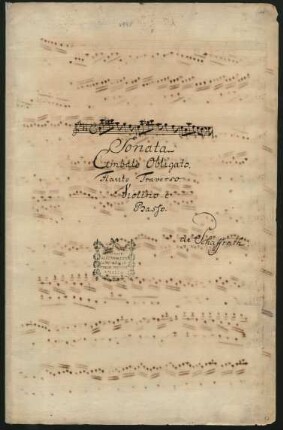 Sonata
Cembalo Obligato.
Flauto Traverso.
Violino è
Basso.
di Schaffrath